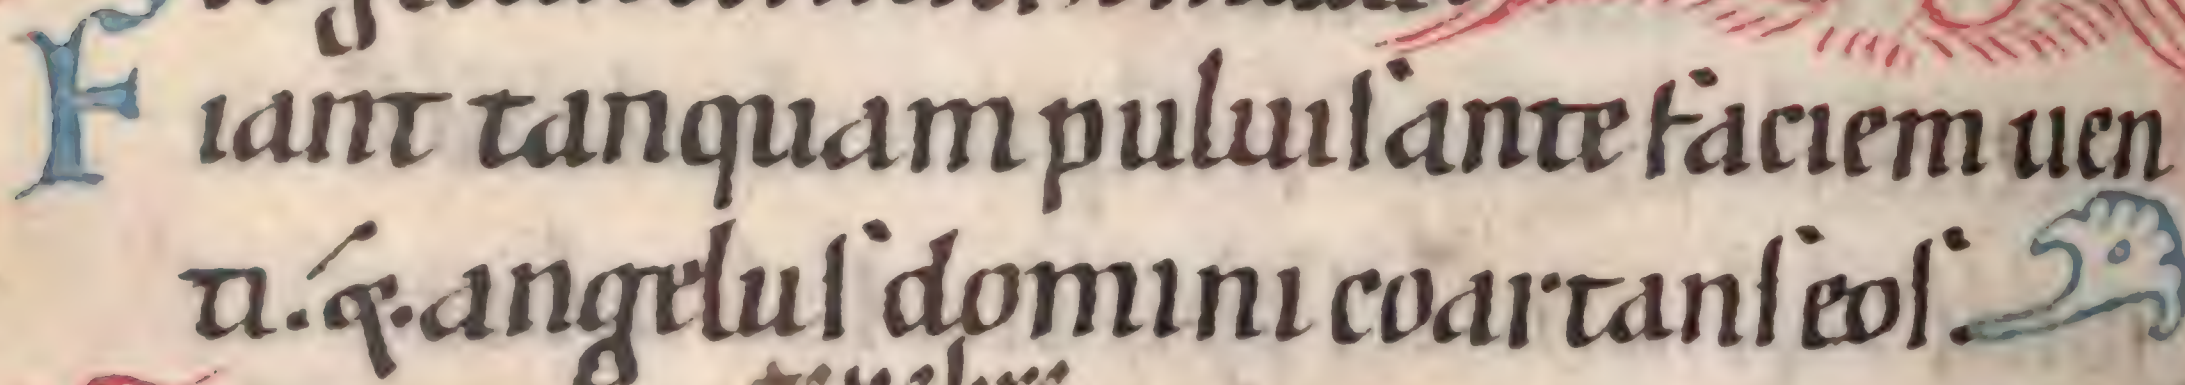 Fiant tanquam puluis ante faciem uen
ti. & angelus domini coartans eos.